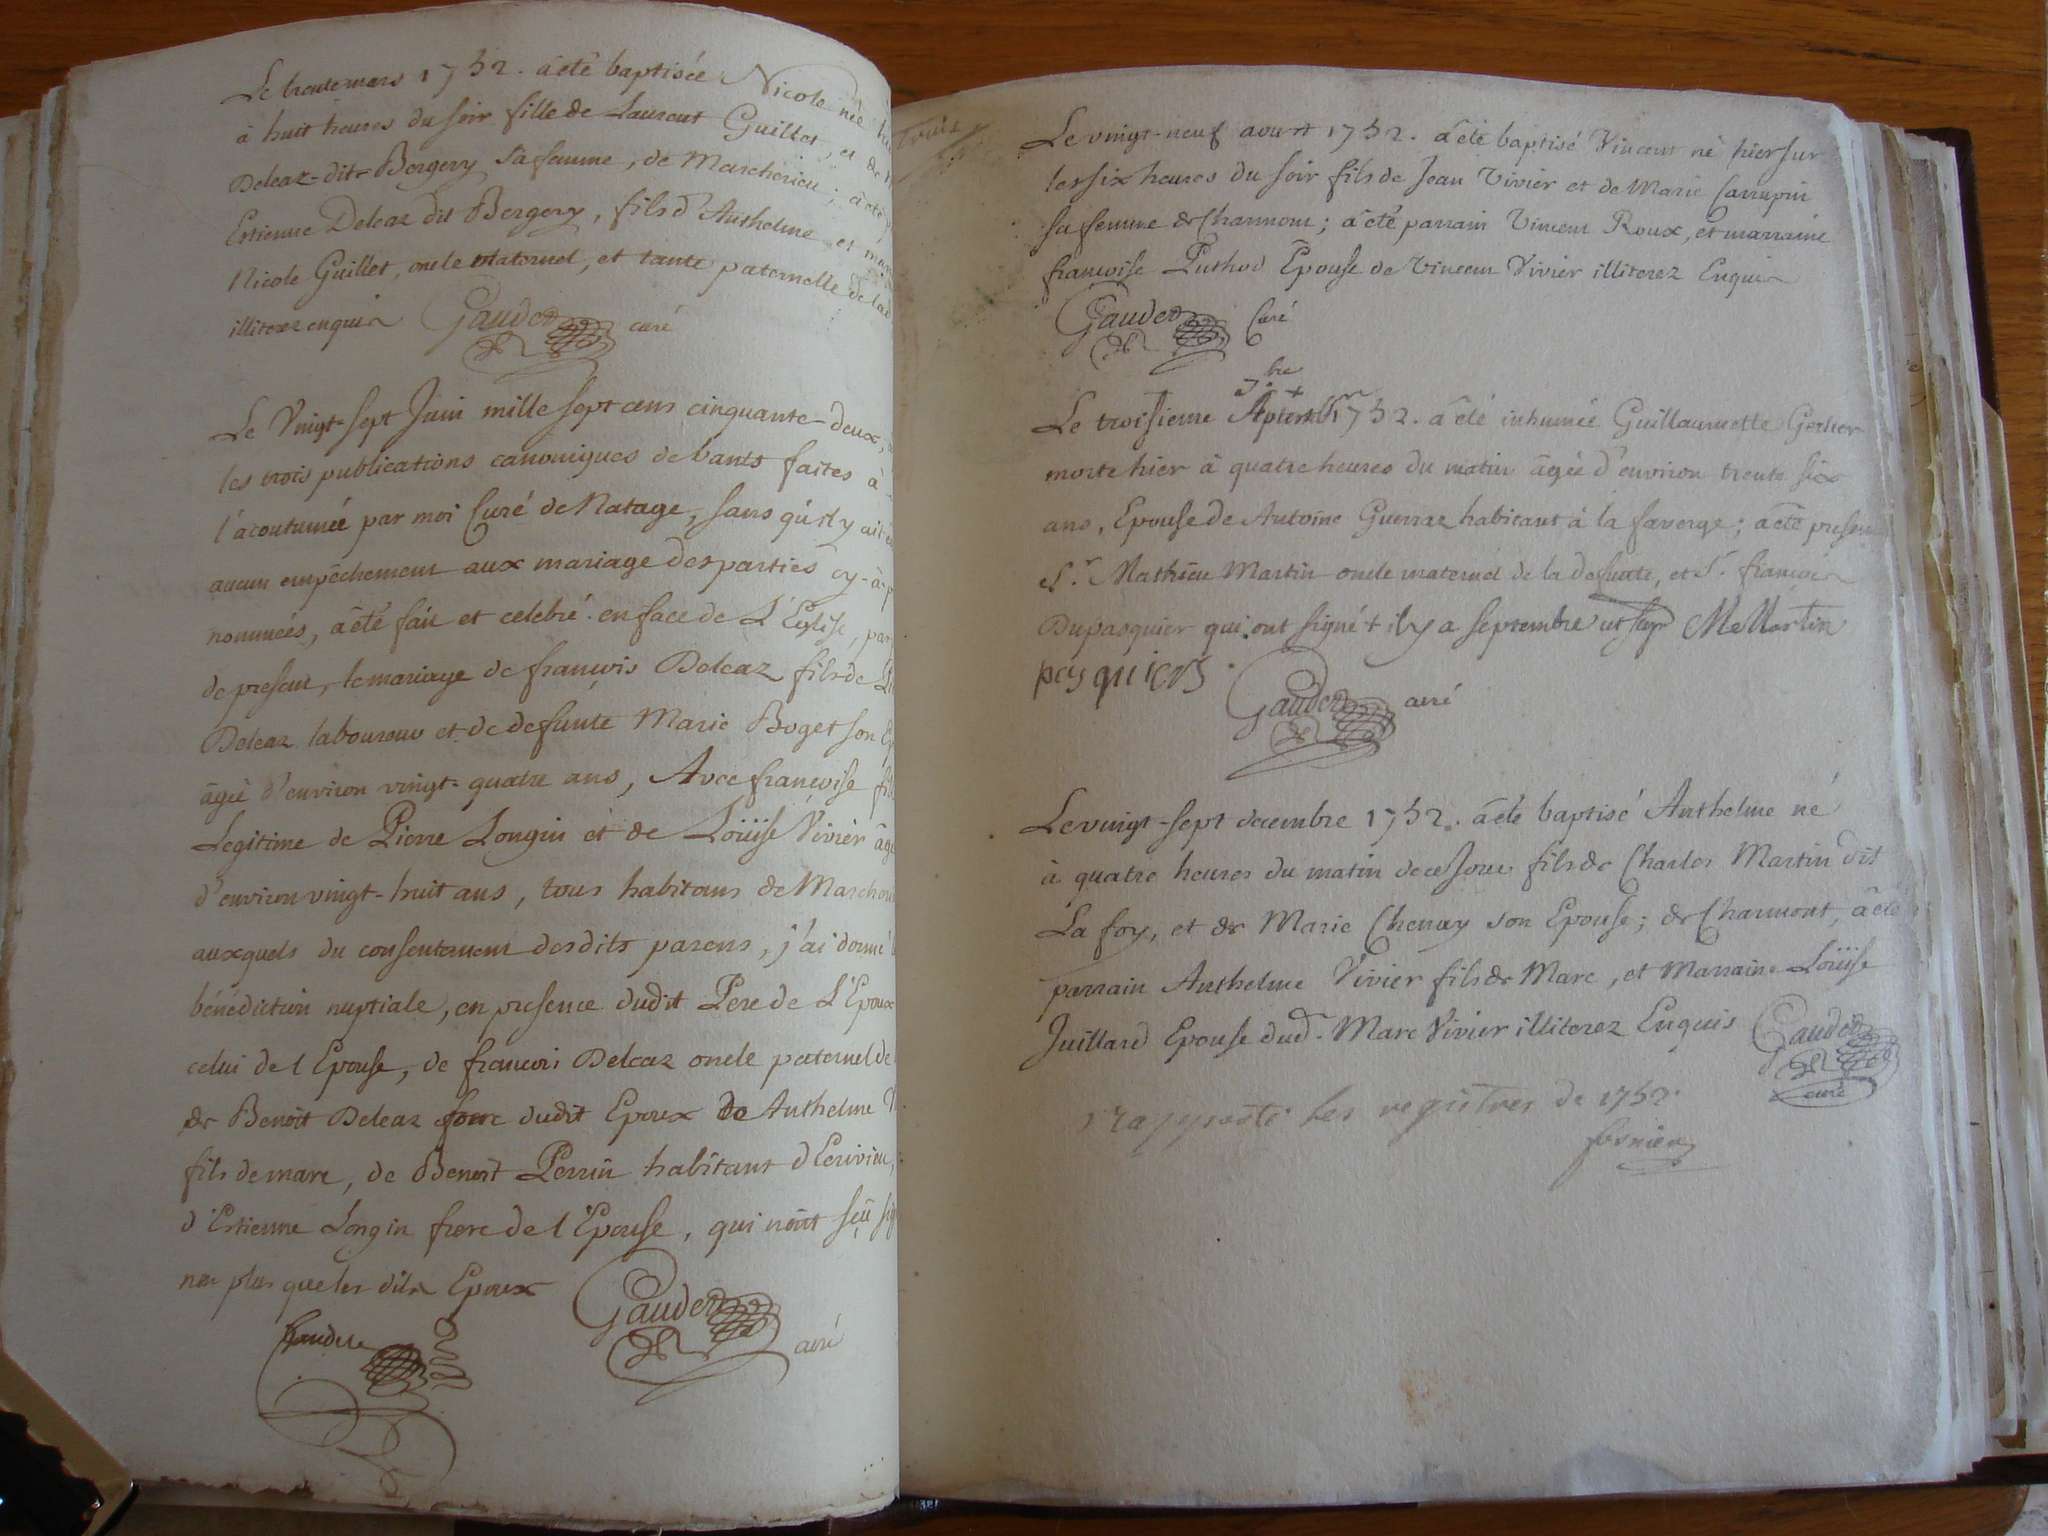 Le trente mars 1752. a été baptisée Nicole née
à huit heures du soir fille de Laurent Guillet, et de
Deleaz-dit-Bergery sa femme, de Marcherieu; a été
Estienne Deleaz dit Bergery, fils d'Anthelme et
Nicole Guillet, oncle maternel, et tante paternelle de la
illiterez enquis Gaudet curé
Le Vingt-sept Juin mille sept cens cinquante-deux,
les trois publications canoniques de bants faites à
l'acoutumée par moi Curé de Natage, sans qu'il y ait
aucun empêchement aux mariage des parties cy-
nommées, a été fait et celebré en face de L'Eglise, par
de present, le mariage de françois Deleaz fils de
Deleaz laboureur et de defunte Marie Boget son
âgé d'environ vingt-quatre ans, Avec françoise
Legitime de Pierre Longin et de Loüise Vivier
d'environ vingt-huit ans, tous habitans de
auxquels du consentement desdits parens, j'ai donné
bénédiction nuptiale, en presence dudit Pere de L'Epoux
celui de l'Epouse, de françois Deleaz oncle paternel de
de Benoît Deleaz frere dudit Epoux de Anthelme
fils de marc, de Benoît Perrin habitant d'Ecrivieu,
d'Estienne Longin frere de l'Epouse, qui n'ont sçû
non plus que les dits Epoux Gaudet
curé
trois
Le vingt-neuf aoust 1752. a été baptisé Vincent né hier sur
les six heures du soir fils de Jean Vivier et de Marie Carrupin
sa femme de Charmont; a été parrain Vincent Roux, et marraine
françoise Puthod Epouse de Vincent Vivier illiterez Enquis
Gaudet Curé
7.bre
+
Le troisieme 1752. a été inhumée Guillaumette
morte hier à quatre heures du matin âgée d'environ trente six
ans, Epouse de Antoine Guerraz habitant à la faverge; a été
Sr. Mathieu Martin oncle maternel de la defunte, et Sr. françois
Dupasquier qui ont signé + il y a septembre ut supr MeMartin
pasquiers
Gaudet curé
Le vingt-sept decembre 1752. a été baptisé Anthelme né
à quatre heures du matin de ce jour fils de Charles Martin dit
La foy, et de Marie Chenay son Epouse; de Charmont, a été
parrain Anthelme Vivier fils de Marc, et Marraine Loüise
Juillard Epouse dud. Marc Vivier illiterez Enquis Gaudet
curé
les registres de 1752.